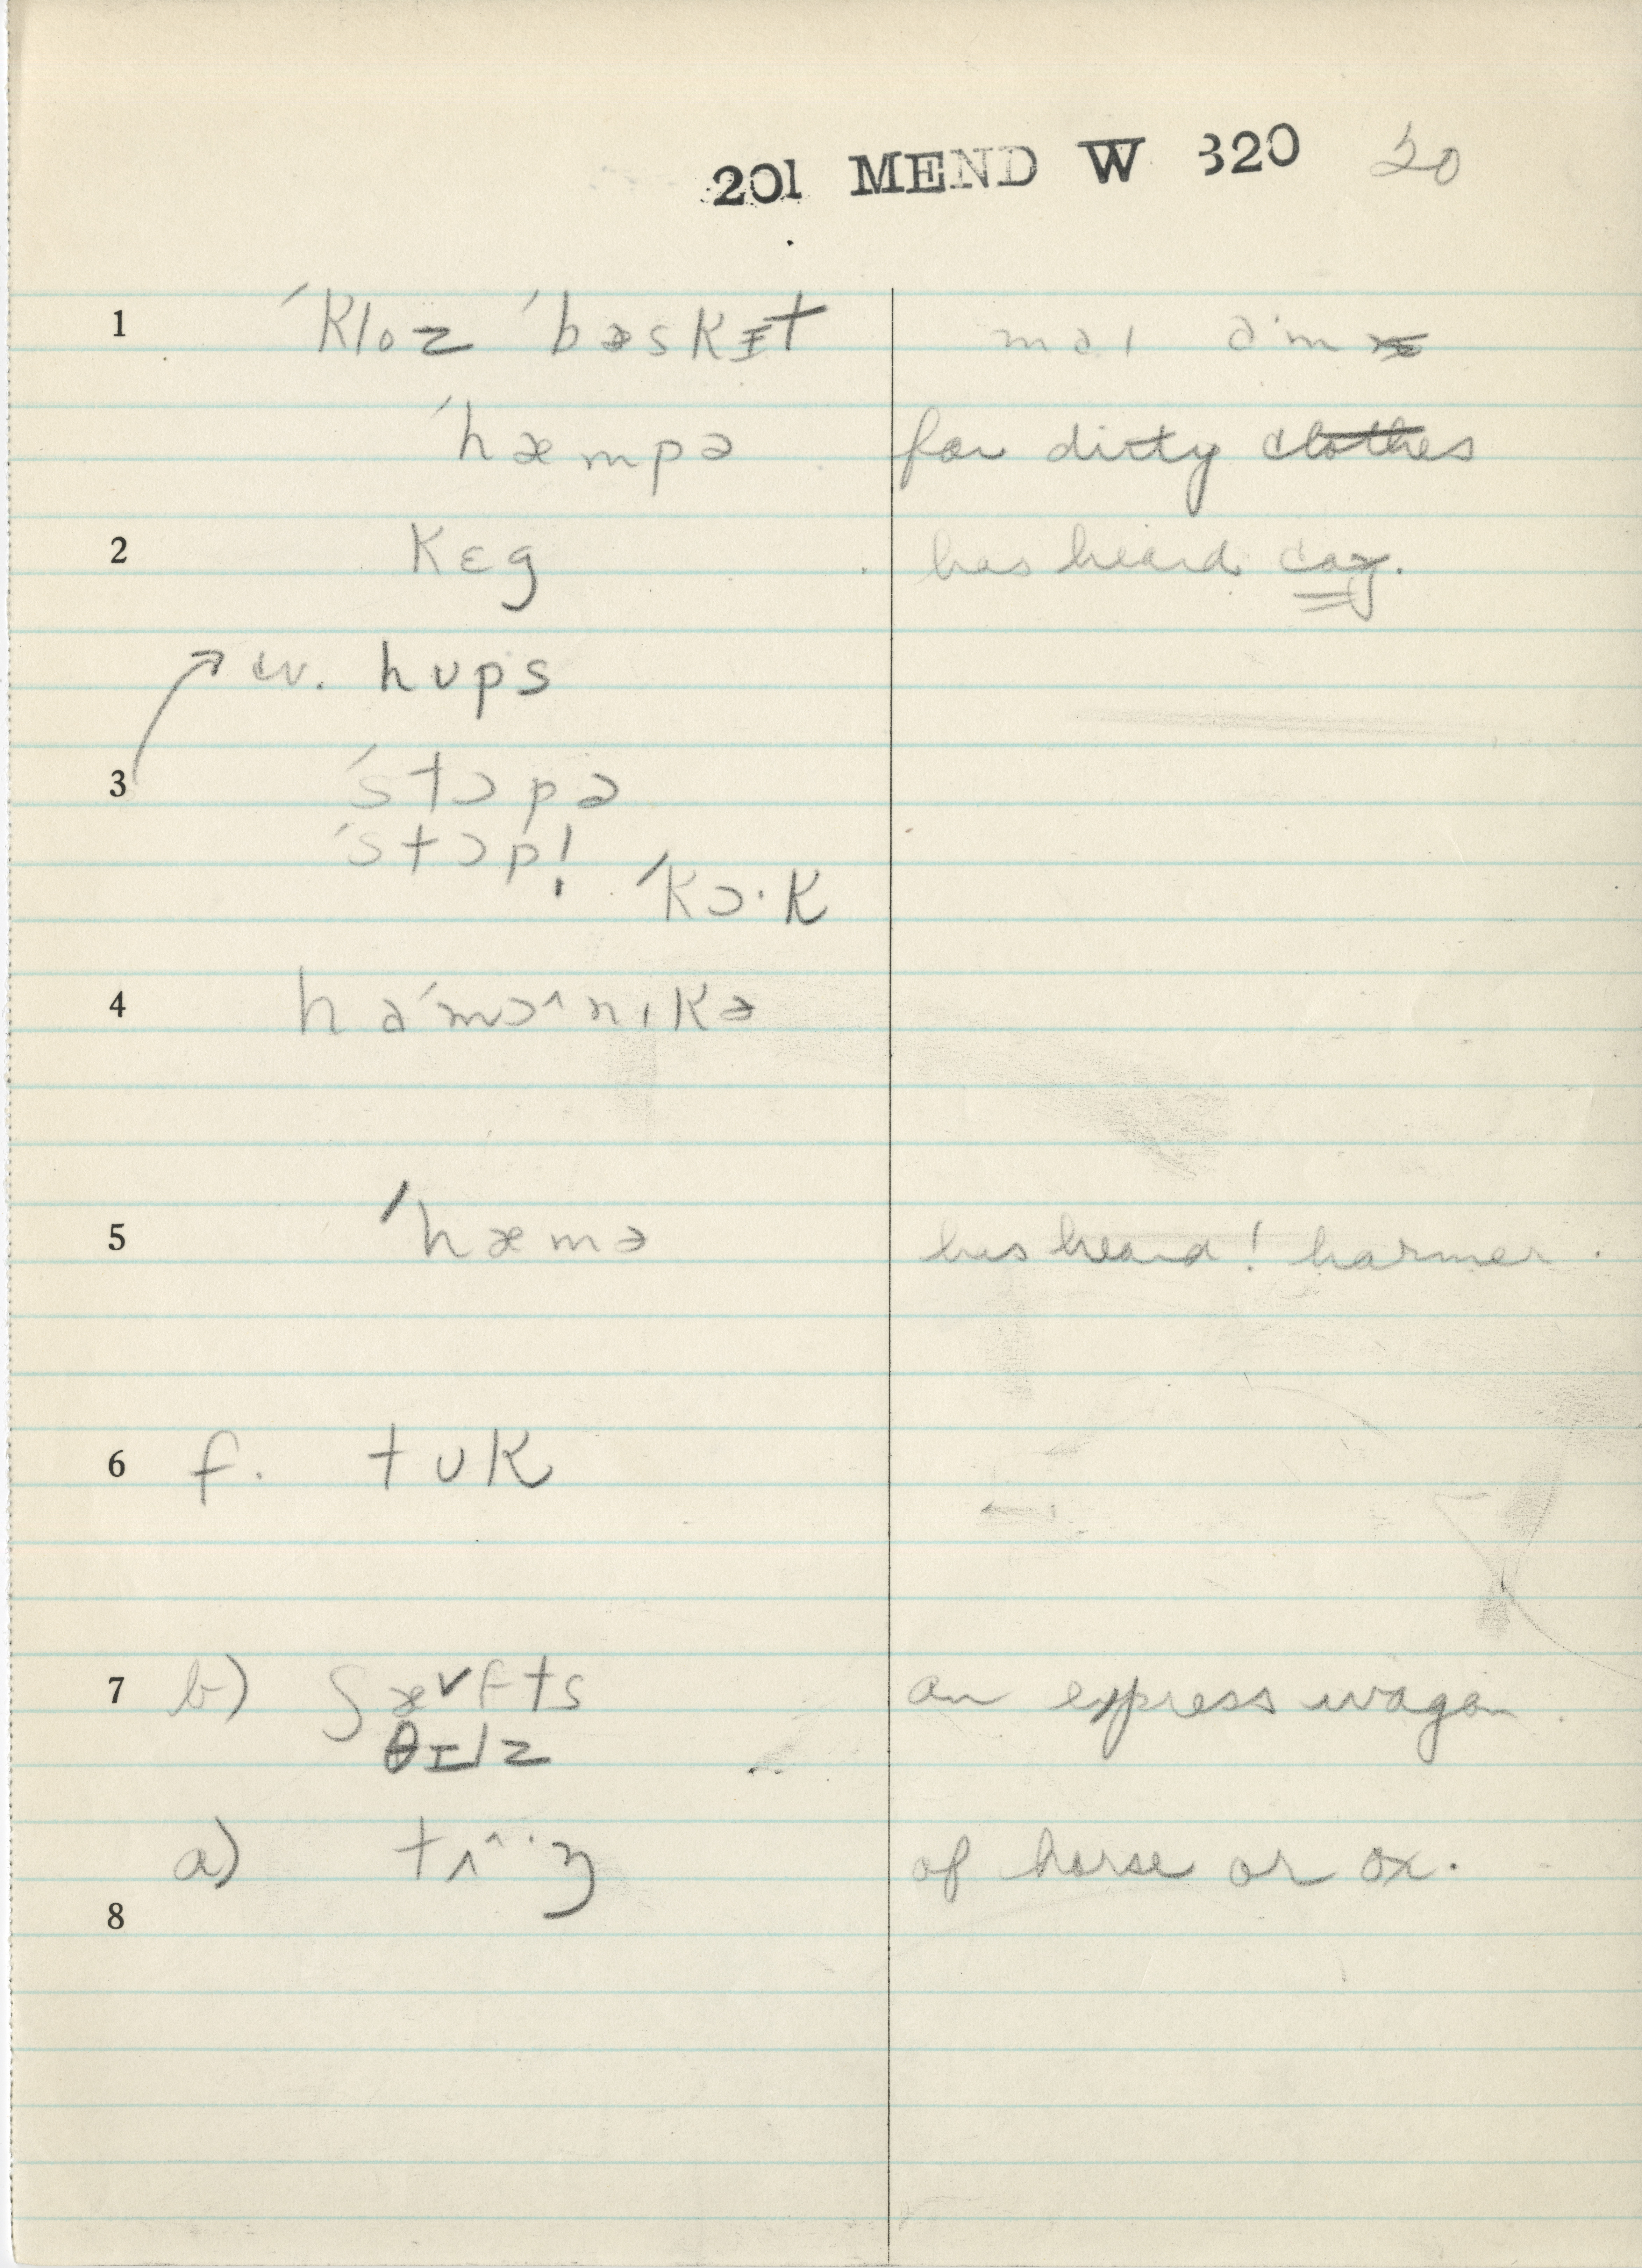 201 MEND W 320 20
1 ˊkloz ˊbəskɪt
ˊhæmpə for dirty clothes
2 kɛg has heard cag.
w. hʊps
3 ˊstɔpə
ˊstɔpl̩ ˊkɔ·k
4 haˊmɔ^nɪkə
5 ˊhæmə has heard! harmer.
6 f. tʊk
7 b) ʃæˇfts an express wagon.
θɪlz
a) tʌ^·ŋ of horse or ox.
8